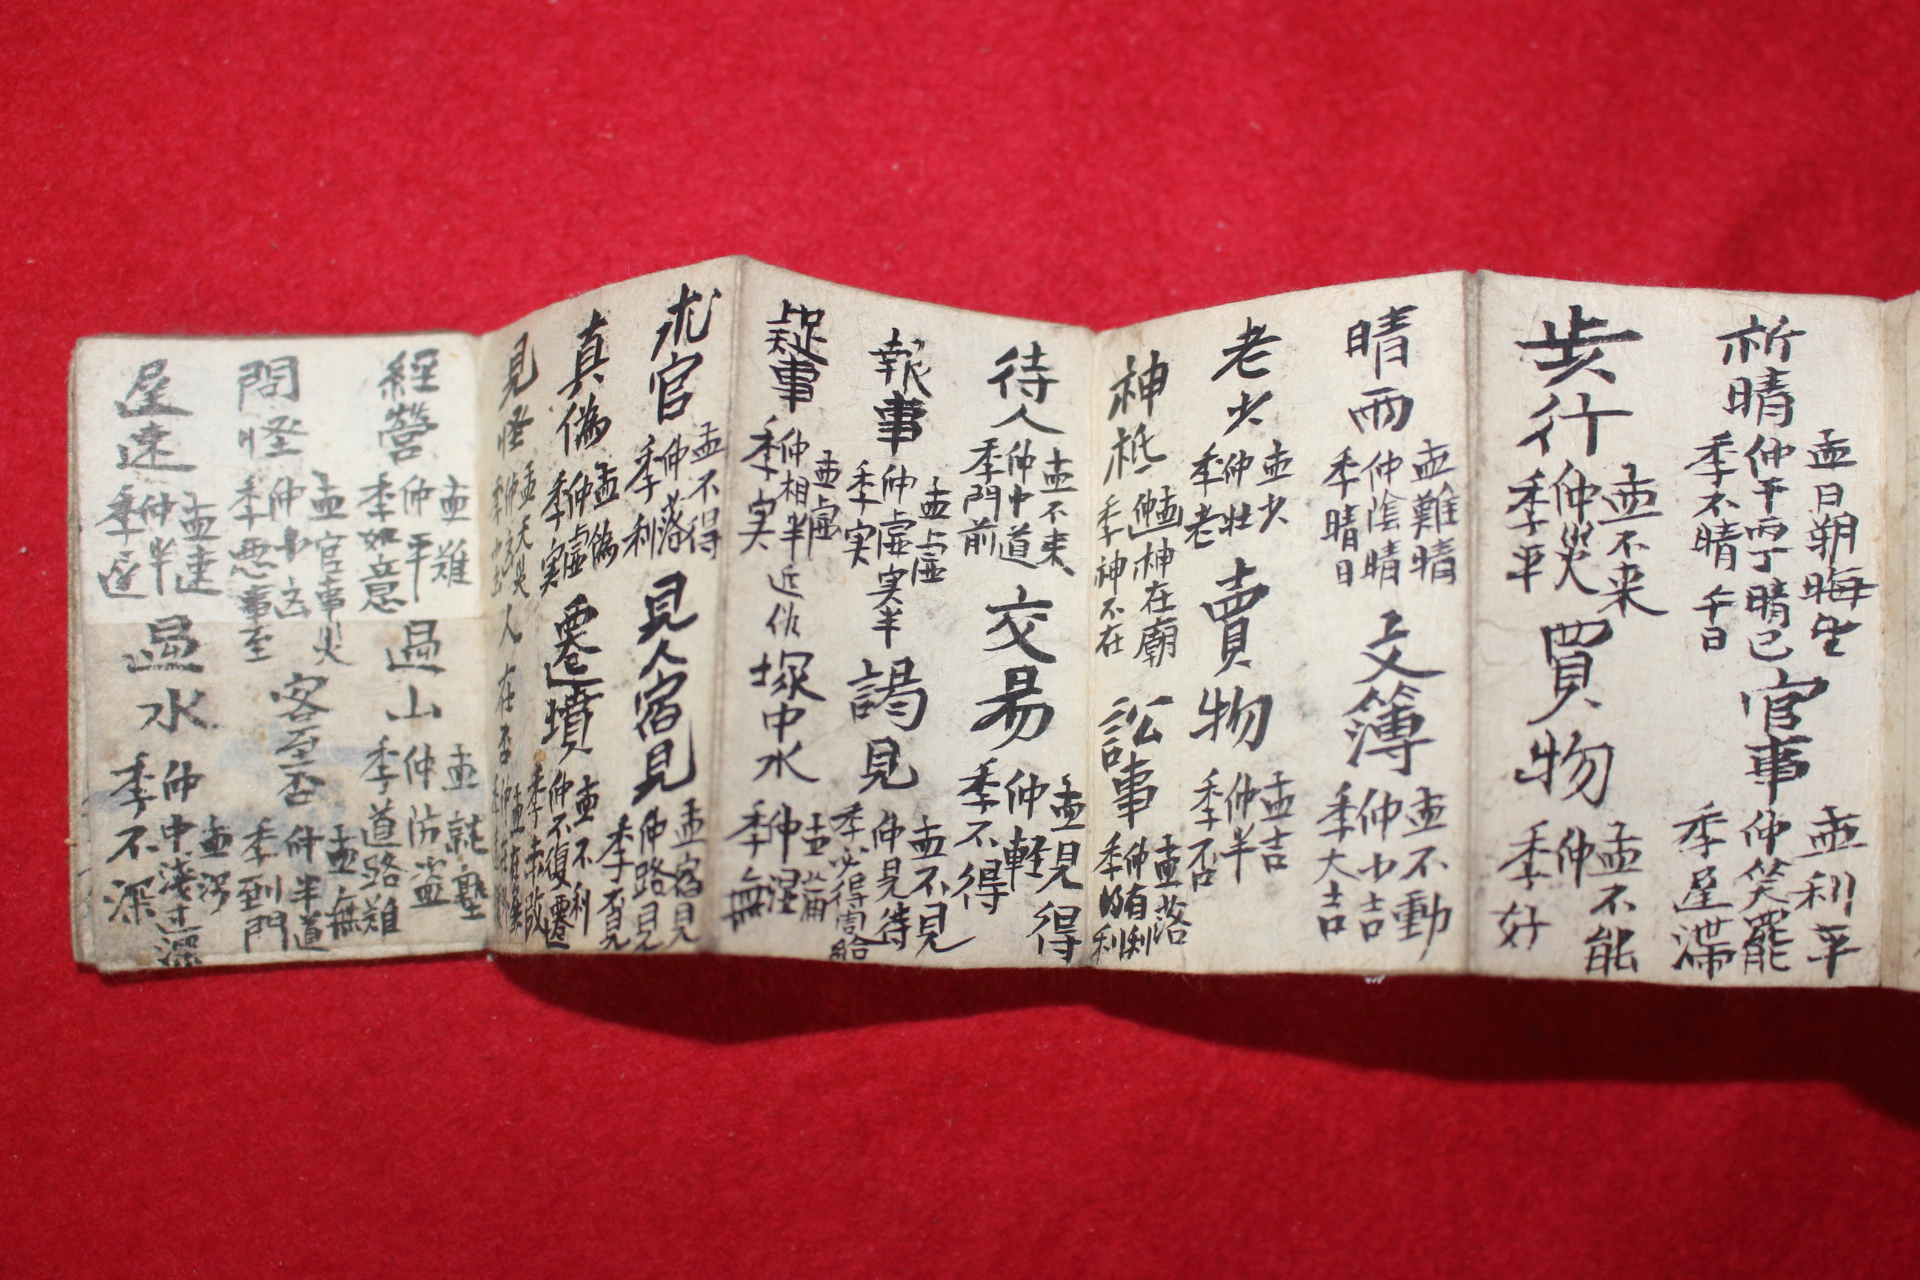 祈晴
孟日朔晦生
仲干丙丁晴已
季不晴 千日
官事
孟利平
仲笑罷
季屋滯
步行
孟不来
仲災
季平
買物
孟不能
仲
季好
晴雨
孟難晴
仲陰晴
季晴日
文簿
孟不動
仲小吉
季大吉
老少
孟少
仲壮
季老
賣物
孟吉
仲半
季否
神祗
仲神在廟
季神不在
訟事
孟落
仲有利
季的利
待人
孟不来
仲中道
季門前
交易
孟見得
仲軽
季不得
報事
孟虛
仲虛実半
季実
謁見
孟不見
仲見待
季必得周給
疑事
孟虛
仲相半
季実
近伱
塚中水
孟
仲湿
季無
求官
孟不得
仲落
季利
見人宿見
孟宿見
仲路見
季不見
真偽
孟偽
仲虛
季実
遷墳
孟不利
仲不復遷
季
見怪
孟天災
人在否
經營
孟难
仲平
季如意
過山
孟
仲防盗
季道路难
問怪
孟官事災
仲
季惡事至
客至否
孟無
仲半道
季到門
孟速
仲半
過水
孟
仲中淺
季不深